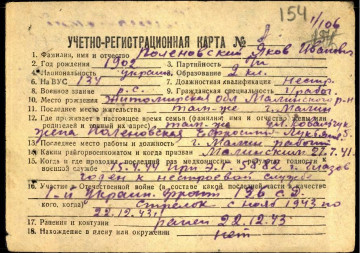 154
1/106
УЧЕТНО-РЕГИСТРАЦИОННАЯ КАРТА № 2
1. Фамилия, имя и отчество Поленовский Яков Иванович
2. Год рождения 1902 3. Партийность б/п
4. Национальность украин. 5. Образование 2 кл.
6. № ВУС 134 7. Должностная квалификация
8. Военное звание р.с. 9. Гражданская специальность
10. Место рождения Житомирская обл Малинский р-н
11. Место постоянного жительства там-же г. Малин
12. Где проживает в настоящее время семья (фамилия имя и отчество жены или
родителей и полный адрес) там-же
жена Поленовская Ефросинья
13. Последнее место работы и должность г. Малин
14. Каким райвоенкоматом и когда призван Малинским 27.7.41
15. Когда и где проходил последний раз медицинское
военной службе 15.4.44 при
годен к нестроевой службе
16. Участие в Отечественной войне (в составе какой последней части в качестве
кого, когда) 1-й Украин. фронт с.д.
стрелок с ноя 1943 по
22.12.43г.
17. Ранения и контузии ранен 22.12.43
18. Нахождение в плену или окружении нет